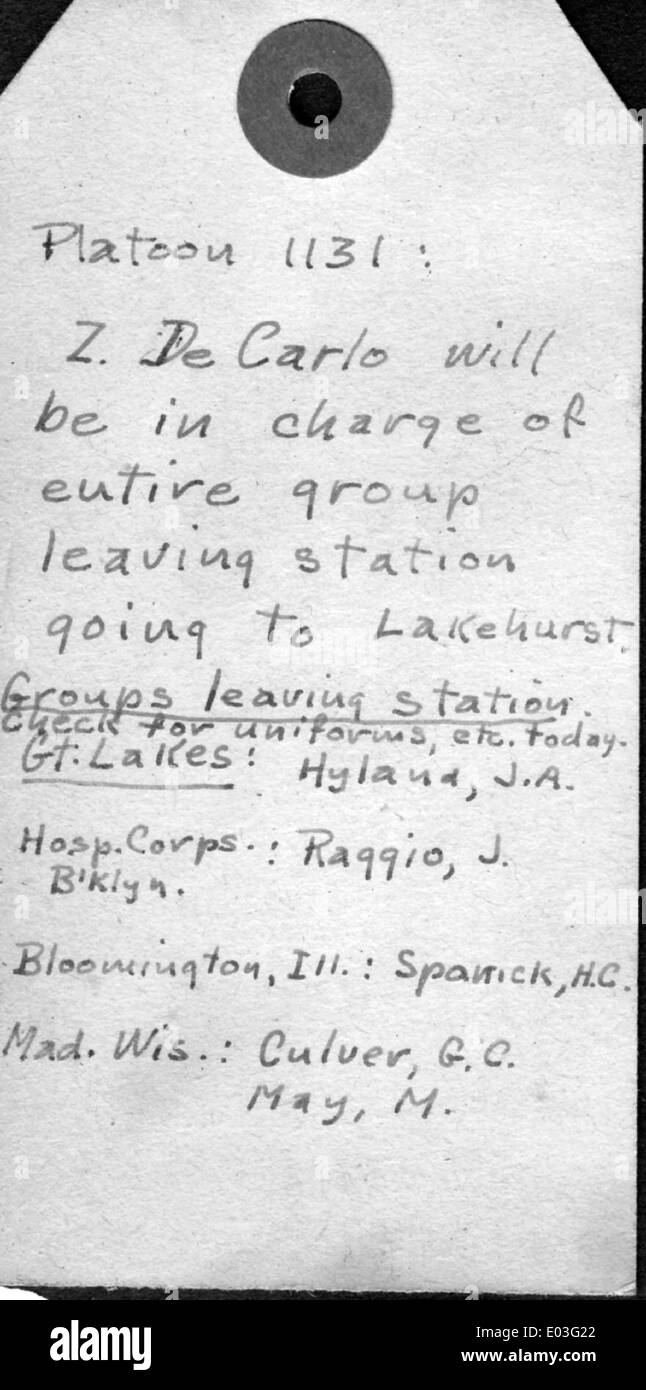 Platoon 1131:
Z. De Carlo will
be in charge of
entire group
leaving station
going to Lakehurst.
Groups leaving station.
Check for uniforms, etc. today.
Gt. Lakes: Hyland, J.A.
Hosp. Corps.: Raggio, J.
B'klyn.
Bloomington, Ill.: Spanick, H.C.
Mad. Wis.: Culver, G.C.
May, M.
a
alamy
a
alamy
a
a
alamy
a
a
alamy
Image ID: E03G22
www.alamy.com